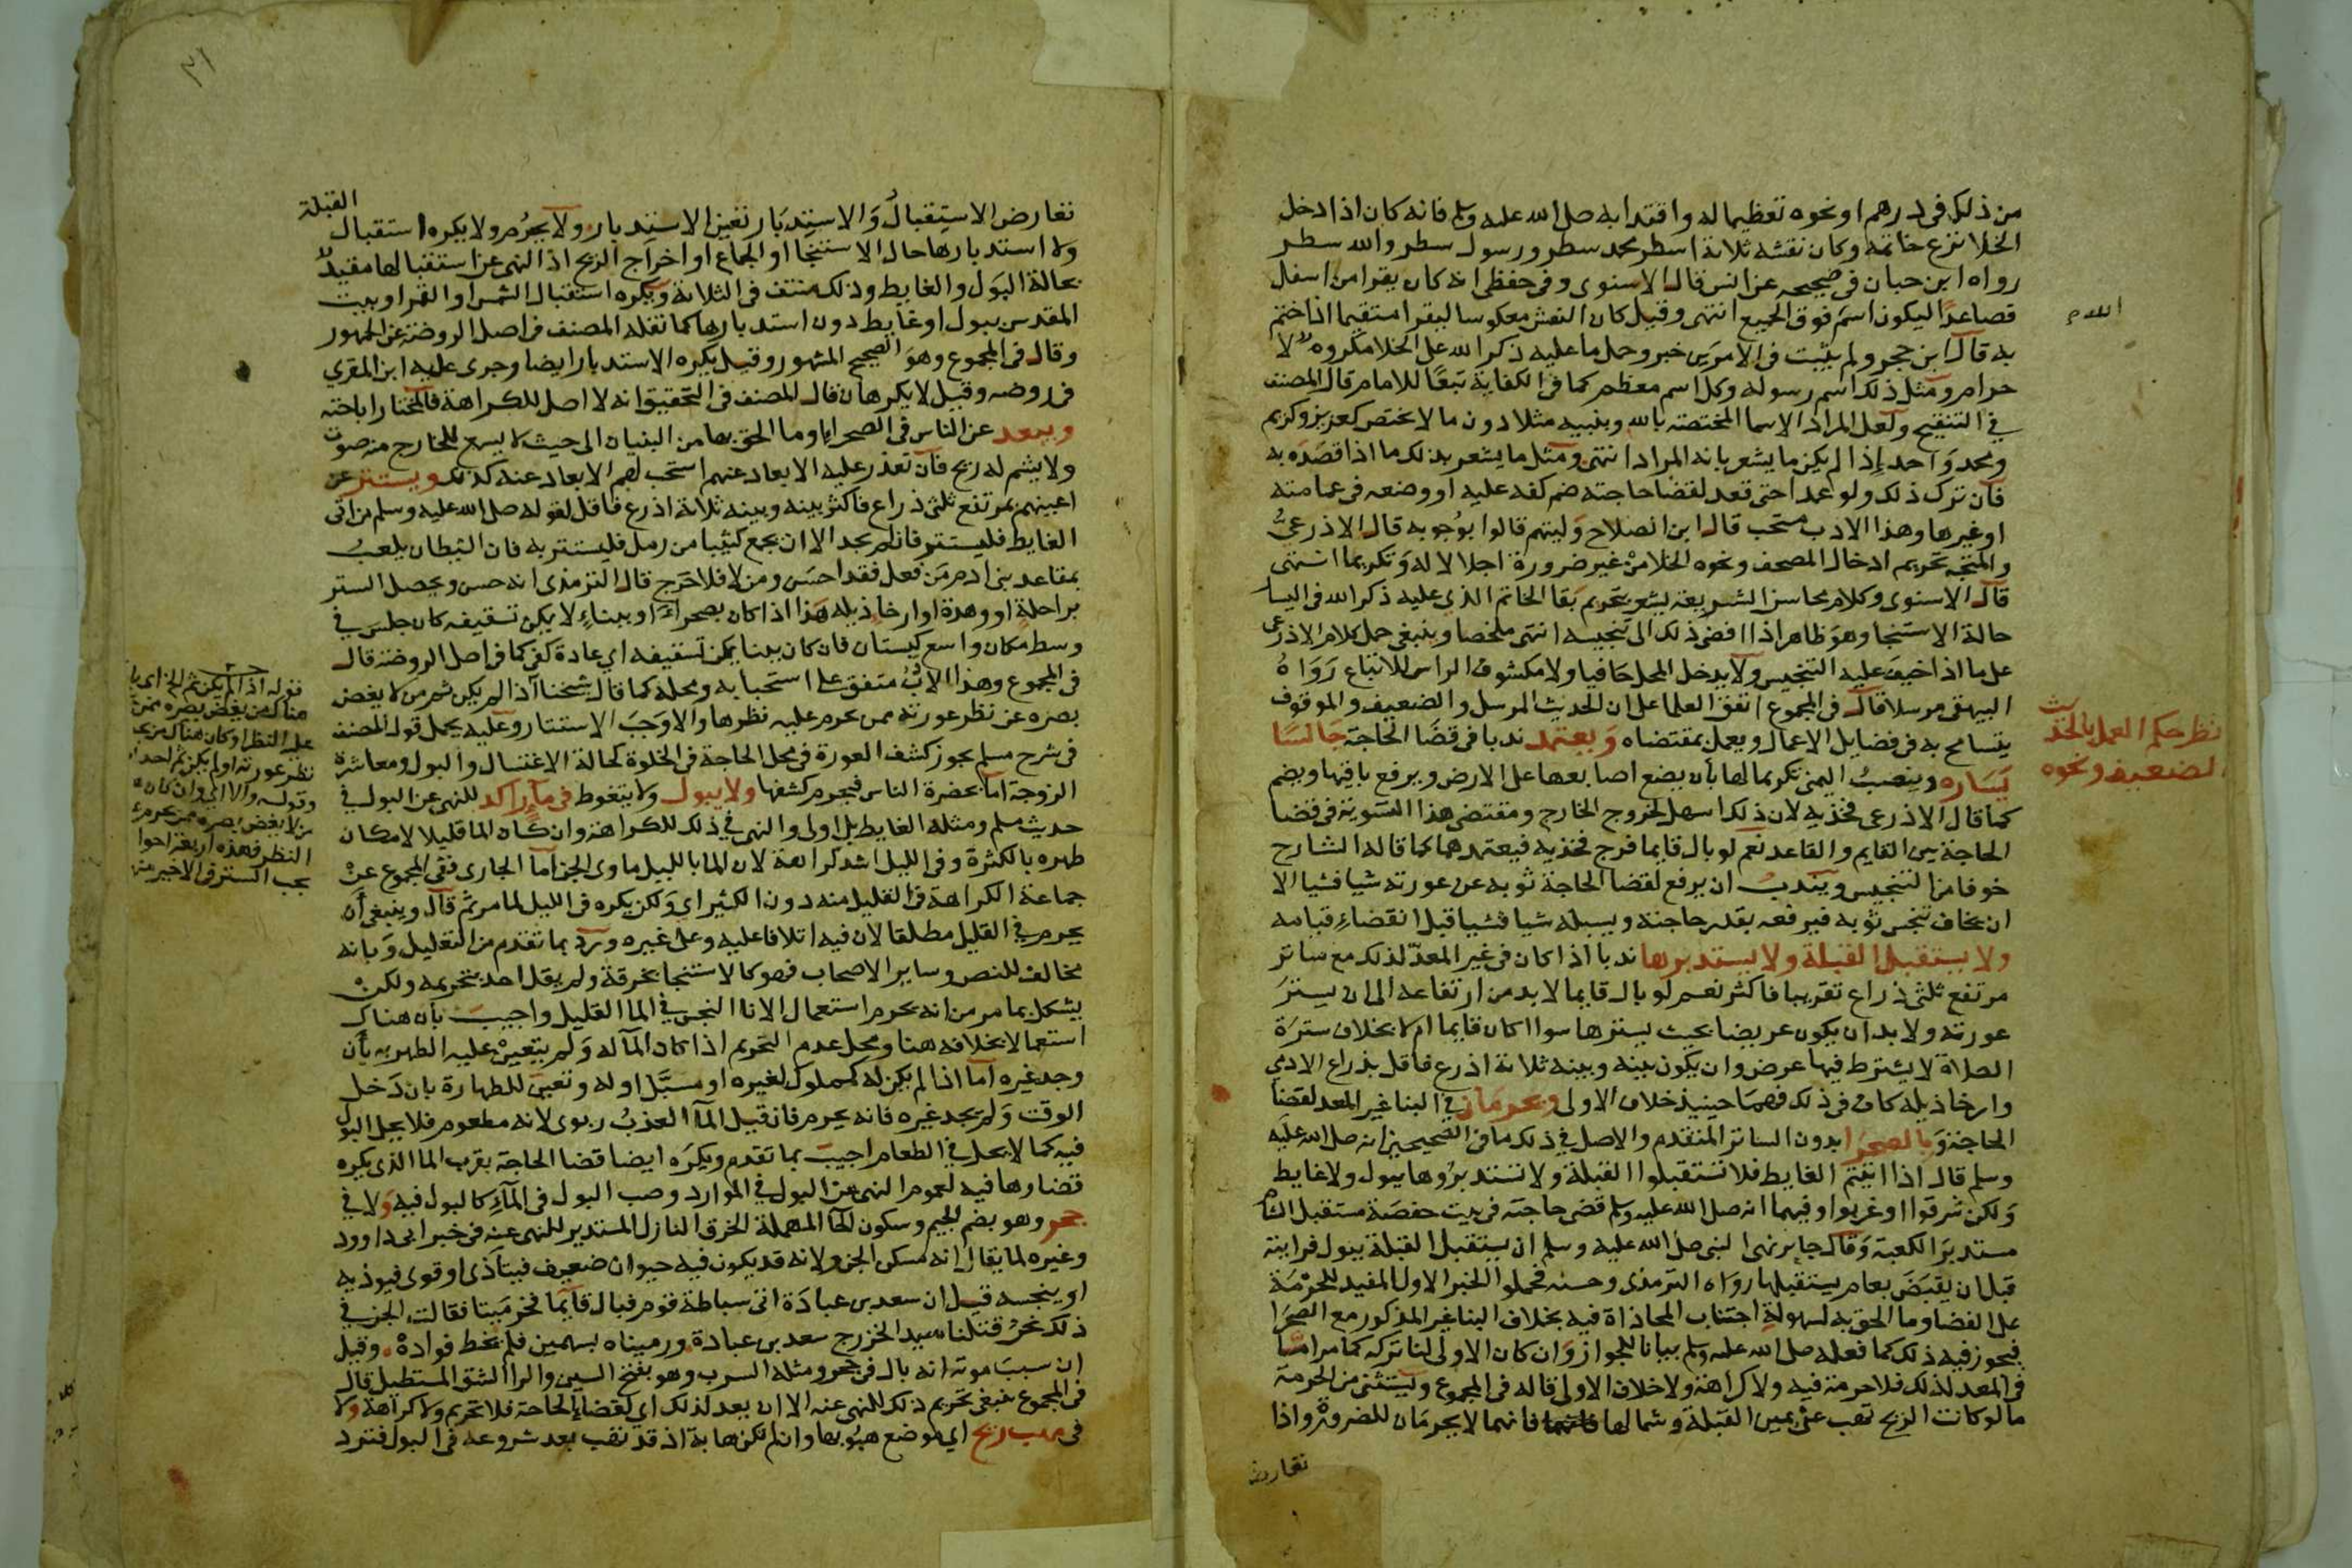 من ذلك في درهم او نحوه تعظيما له واقتداء به صلى الله عليه وسلم فانه كان اذا دخل
الخلا نزع خاتمه وكان نقشه ثلاثة اسطر محمد سطر ورسول سطر والله سطر
رواه ابن حبان في صحيحه عن انس قال الاسنوى وفى حفظى انه كان يقرا من اسفل
فصاعدًا ليكون اسم فوق الجميع انتهى وقيل كان النقش معكوسا ليقرا مستقيما اذا ختم
الله م
به قال ابن حجر ولم يثبت في الامرين خبر وحمل ما عليه ذكر الله على الخلا مكروه لا
حرام ومثل ذلك اسم رسوله وكل اسم معظم كما في الكفاية تبعًا للامام قال المصنف
في التنقيح ولعل المراد الاسما المختصة بالله ونبيه مثلا دون ما لا يختص كعزيز وكريم
ومحمد وَاحمد إذا لم يكن ما يشعر بانه المراد انتهى ومثل ما يشعر بذلك ما اذا قصَدَه به
فان ترك ذلك ولو عمدا حتى قعد لقضا حاجته ضم كفه عليه او وضعه في عمامته
او غيرها وهذا الادب مستحب قال ابن الصلاح وَليتهم قالوا بوُجوبه قال الاذرعيُّ
والمتجه تحريم ادخال المصحف ونحوه الخلا منْ غير ضرورة اجلالا له وَتكريما انتهى
قال الاسنوى وكلام محاسن الشريعة يشعر بتحريم بقا الخاتم الذي عليه ذكر الله في اليسار
حالة الاستنجا وهوَ ظاهر اذا افضى ذلك الى تنجيسه انتهى ملخصا وينبغي حمل كلام الاذرعى
على ما اذا خيف عليه التنجيس ولا يدخل المحل حَافيا ولا مكشوف الراس للاتباع رَوَاهُ
البيهقى مرسلا قال في المجموع اتفق العلما على ان الحديث المرسل والضعيف والموقوف
يتسامح به في فضايل الاعمال ويعمل بمقتضاه وَيعتمد ندبا في قضَا الحَاجة جَالسًا
نظر حكم العمل بالحديث
الضعيف ونحوه
يَسَاره وينصبُ اليمنى تكريما لها بأن يضع اصابعها على الارض ويرفع باقيها ويضم
كما قال الاذرعى فخذيه لان ذلك اسهل لخروج الخارج ومقتضى هذا التسوية في قضا
الحاجة بين القايم والقاعد نعم لو بال قايما فرج فخذيه فيعتمدهما كما قاله الشارح
خوفا من التنجيس ويندبُ ان يرفع لقضا الحاجة ثوبه عن عورته شيا فشيا الا
ان يخاف تنجس ثوبه فيرفعه بقدر حاجته ويسبله شيا فشيا قبل انقضاءِ قيامه
ولا يستقبل القبلة ولا يستدبرها ندبا اذا كان في غير المعدّ لذلك مع ساتر
مرتفع ثلثى ذراع تقريبا فاكثر نعم لو بال قايما لا بد من ارتفاعه الى ان يسترَ
عورته ولا بد ان يكون عريضا بحيث يسترها سوا اكان قايما ام لا بخلاف سترَة
الصلاة لا يشترط فيها عرض وان يكون بينه وبينه ثلاثة اذرع فاقل بذراع الادمى
وارخا ذيله كاف في ذلك فهمَا حينيذ خلاف الاولى ويحرمَان في البنا غير المعد لقضَا
الحاجة وَبالصحرَا بدون الساتر المتقدم والاصل في ذلك ما في الصحيحين انه صلى الله عليه
وسلم قال اذا اتيتم الغايط فلا تستقبلوا القبلة ولا تستدبرُوها ببول ولا غايط
وَلكن شرقوا او غربوا وفيهما انه صلى الله عليه وسلم قضى حاجته في بيت حفصَة مستقبل الشام
مستدبرَ الكعبة وَقال جابر نهى النبى صلى الله عليه وسلم ان يستقبل القبلة ببول فرايته
قبل ان يقبَضَ بعام يستقبلها روَاه الترمذى وحسنه فحملوا الخبر الاول المفيد للحرمَة
على الفضا وما الحق به لسهولة اجتناب المحاذاة فيه بخلاف البنا غير المذكور مع الصحرَا
فيجوز فيه ذلك كما فعله صلى الله عليه وسلم بيانا للجواز وَان كان الاولى لنا تركه كما مر امسَّا
في المعد لذلك فلا حرمة فيه ولا كراهة ولا خلاف الاولى قاله في المجموع ويستثنى من الحرمة
ما لو كانت الريح تهب عن يمين القبلة وشمالها فانهما لا يحرمَان للضرورة واذا
تعارض
٣١
تعارض الاستقبالُ وَالاستدبَار تعين الاستدبار ولا يحرُم ولا يكره استقبال القبلة
ولا استدبارها حال الاستنجا او الجماع او اخراج الريح اذ النهى عن استقبالها مقيد
بحالة البوَل والغايط وذلك منتف في الثلاثة ويكره استقبال الشمس او القمر او بيت
المقدس ببول او غايط دون استدبارها كما نقله المصنف في اصل الروضة عن الجمهور
وقال في المجموع وهوَ الصحيح المشهور وقيل يكره الاستدبار ايضا وجرى عليه ابن المقري
في روضه وقيل لا يكرهان قال المصنف في التحقيق انه لا اصل للكراهة فالمختار اباحته
ويبعد عن الناس في الصحرا وما الحق بها من البنيان الى حيث لا يسمع للخارج منه صوت
ولا يشم له ريح فان تعذر عليه الابعاد عنهم استحب لهم الابعاد عنه كذلك ويستتر عن
اعينهم بمرتفع ثلثى ذراع فاكثر بينه وبينه ثلاثة اذرع فاقل لقوله صلى الله عليه وسلم من اتى
الغايط فليستتر فان لم يجد الا ان يجمع كثيبا من رمل فليستتر به فان الشيطان يلعبُ
بمقاعد بنى ادم مَن فعل فقد احسَن ومن لا فلا حَرج قال الترمذى انه حسن ويحصل الستر
براحلةٍ او وهدة او ارخا ذيله هَذا اذا كان بصحراءَ او ببناءٍ لا يمكن تسقيفه كان جلسَ في
وسط مكان واسع كبستان فان كان ببنا يمكن تسقيفه اي عادة كفى كما في اصل الروضة قال
في المجموع وهذا الادبُ متفق على استحبابه ومحله كما قال شيخنا اذا لم يكن ثم من لا يغض
بصره عن نظر عورته ممن يحرم عليه نظرها والا وَجبَ الاستتار وعليه يحمل قول المصنف
في شرح مسلم يجوز كشف العورة في محل الحاجة في الخلوة كحالة الاغتسال والبول ومعاشرة
الزوجة اما بحضرة الناس فيحرم كشفها ولا يبول ولا يتغوط في مآءٍ راكد للنهى عن البول في
حديث مسلم ومثله الغايط بل اولى والنهى في ذلك للكراهة وان كان الما قليلا لامكان
طهره بالكثرة وفى الليل اشد كراهة لان الما بالليل ماوى الجن امَا الجارى ففى المجموع عنْ
جماعة الكراهة في القليل منه دون الكثير اى وَلكن يكره في الليل لما مر ثم قال وينبغى أن
يحرم في القليل مطلقا لان فيه اتلافا عليه وعلى غيره ورد بما تقدم من التعليل وَبانه
مخالف للنص وساير الاصحاب فهو كالاستنجا بخرقة ولم يقل احد بتحريمه ولكنْ
يشكل بما مر من انه يحرم استعمال الانا النجس في الما القليل واجيبَ بان هناك
استعمالا بخلافه هنا ومحل عدم التحريم اذا كان المآ له وَلم يتعينْ عليه الطهر به بأن
وجد غيره اما اذا لم يكن له كمملوك لغيره او مسبَّل او له وتعين للطهارة بان دَخل
الوقت وَلم يجد غيره فانه يحرم فان قيل المآ العذبُ ربوى لانه مطعوم فلا يحل البول
فيه كما لا يحل في الطعام اجيبَ بما تقدم ويكرَه ايضا قضا الحاجة بقرب الما الذى يكره
قضاوها فيه لعموم النهى عن البول في الموارد وصب البول في المآءِ كالبول فيه وَلا في
جحر وهو بضم الجيم وسكون الحآ المهملة الخرق النازل المستدير للنهى عنه في خبر ابى داوود
وغيره لما يقال انه مسكن الجن ولانه قد يكون فيه حيوان ضعيف فيتأذى او قوى فيوذيه
او ينجسه قيل ان سعد بن عبادَة اتى سباطة قوم فبال قايمًا فخر مَيتا فقالت الجن في
ذلك نحنُ قتلنا سيد الخزرج سعد بن عبادة ورميناه بسهمين فلم نخط فوادهْ وقيل
ان سببَ موته انه بال في جحر ومثله السرب وهو بفتح السين والرا الشق المستطيل قال
في المجموع ينبغى تحريم ذلك للنهى عنه الا ان يعد لذلك اي لقضاءِ الحاجة فلا تحريم ولا كراهة ولا
في مهب ريح اي موضع هبُوبها وان لم تكن هابة اذ قد تهب بعد شروعه في البول فترد
قوله اذا لم يكن ثم الخ اى بان
هناك من يغض بصره ممن
عليه النظر او كان هناك من يحل
نظر عورته او لم يكن ثم احد
وقوله والا اى وان كان
من لا يغض بصره ممن يحرم
النظر فهذه اربعة احوا
يجب الستر في الاخير منه